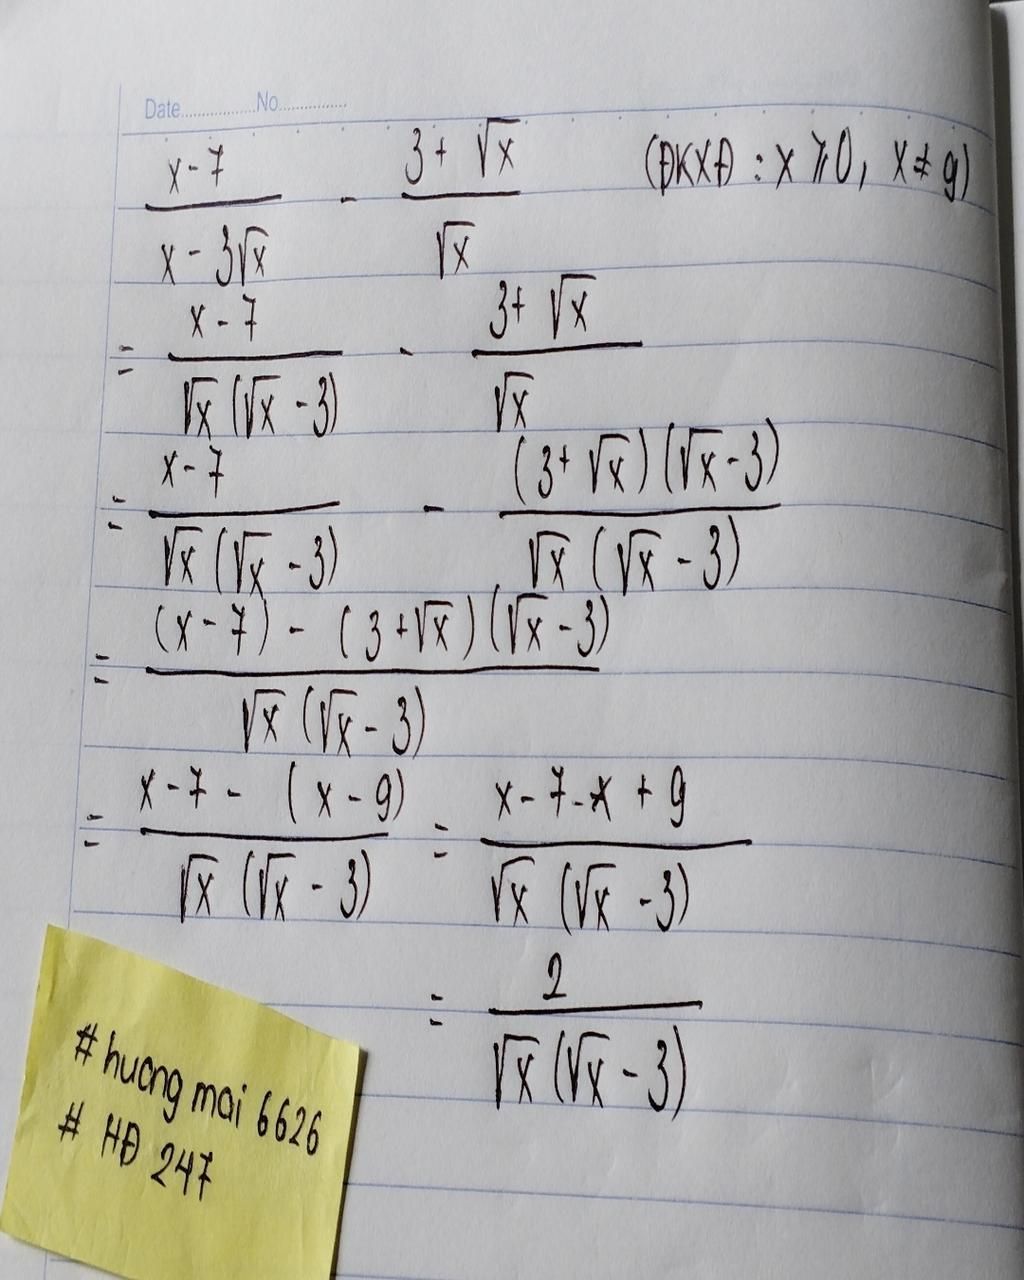 Date............No............
x - 7 / x - 3√x - 3 + √x / √x (ĐKXĐ : x ⩾ 0, x ≠ 9)
= x - 7 / √x (√x - 3) - 3 + √x / √x
= x - 7 / √x (√x - 3) - (3 + √x) (√x - 3) / √x (√x - 3)
= (x - 7) - (3 + √x) (√x - 3) / √x (√x - 3)
= x - 7 - (x - 9) / √x (√x - 3) = x - 7 - x + 9 / √x (√x - 3)
= 2 / √x (√x - 3)
# huong mai 6626
# HĐ 247